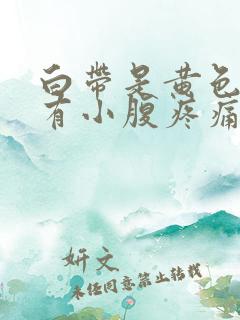 白带是黄色
有小腹疼痛
妍文
未经同意禁止转载